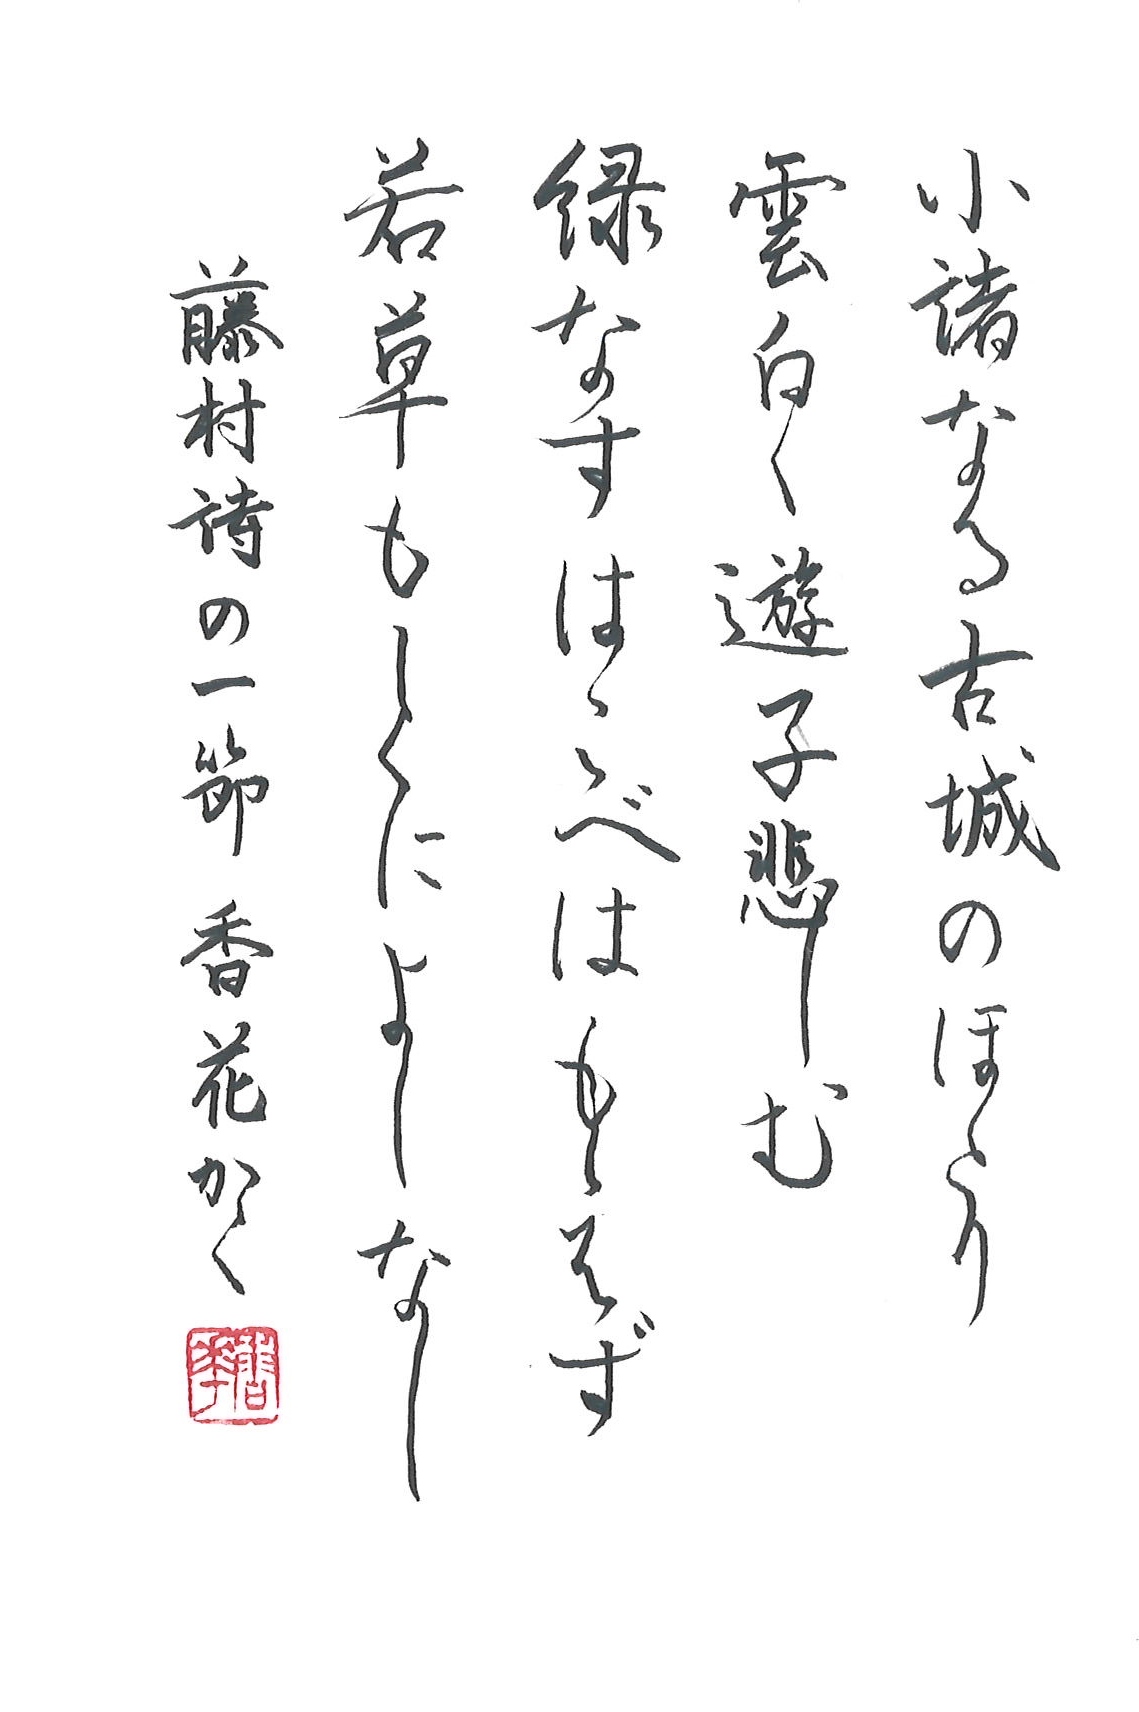 小諸なる古城のほとり
雲白く遊子悲しむ
緑なすはこべはもえず
若草もしくによしなし
藤村詩の一節 香花かく